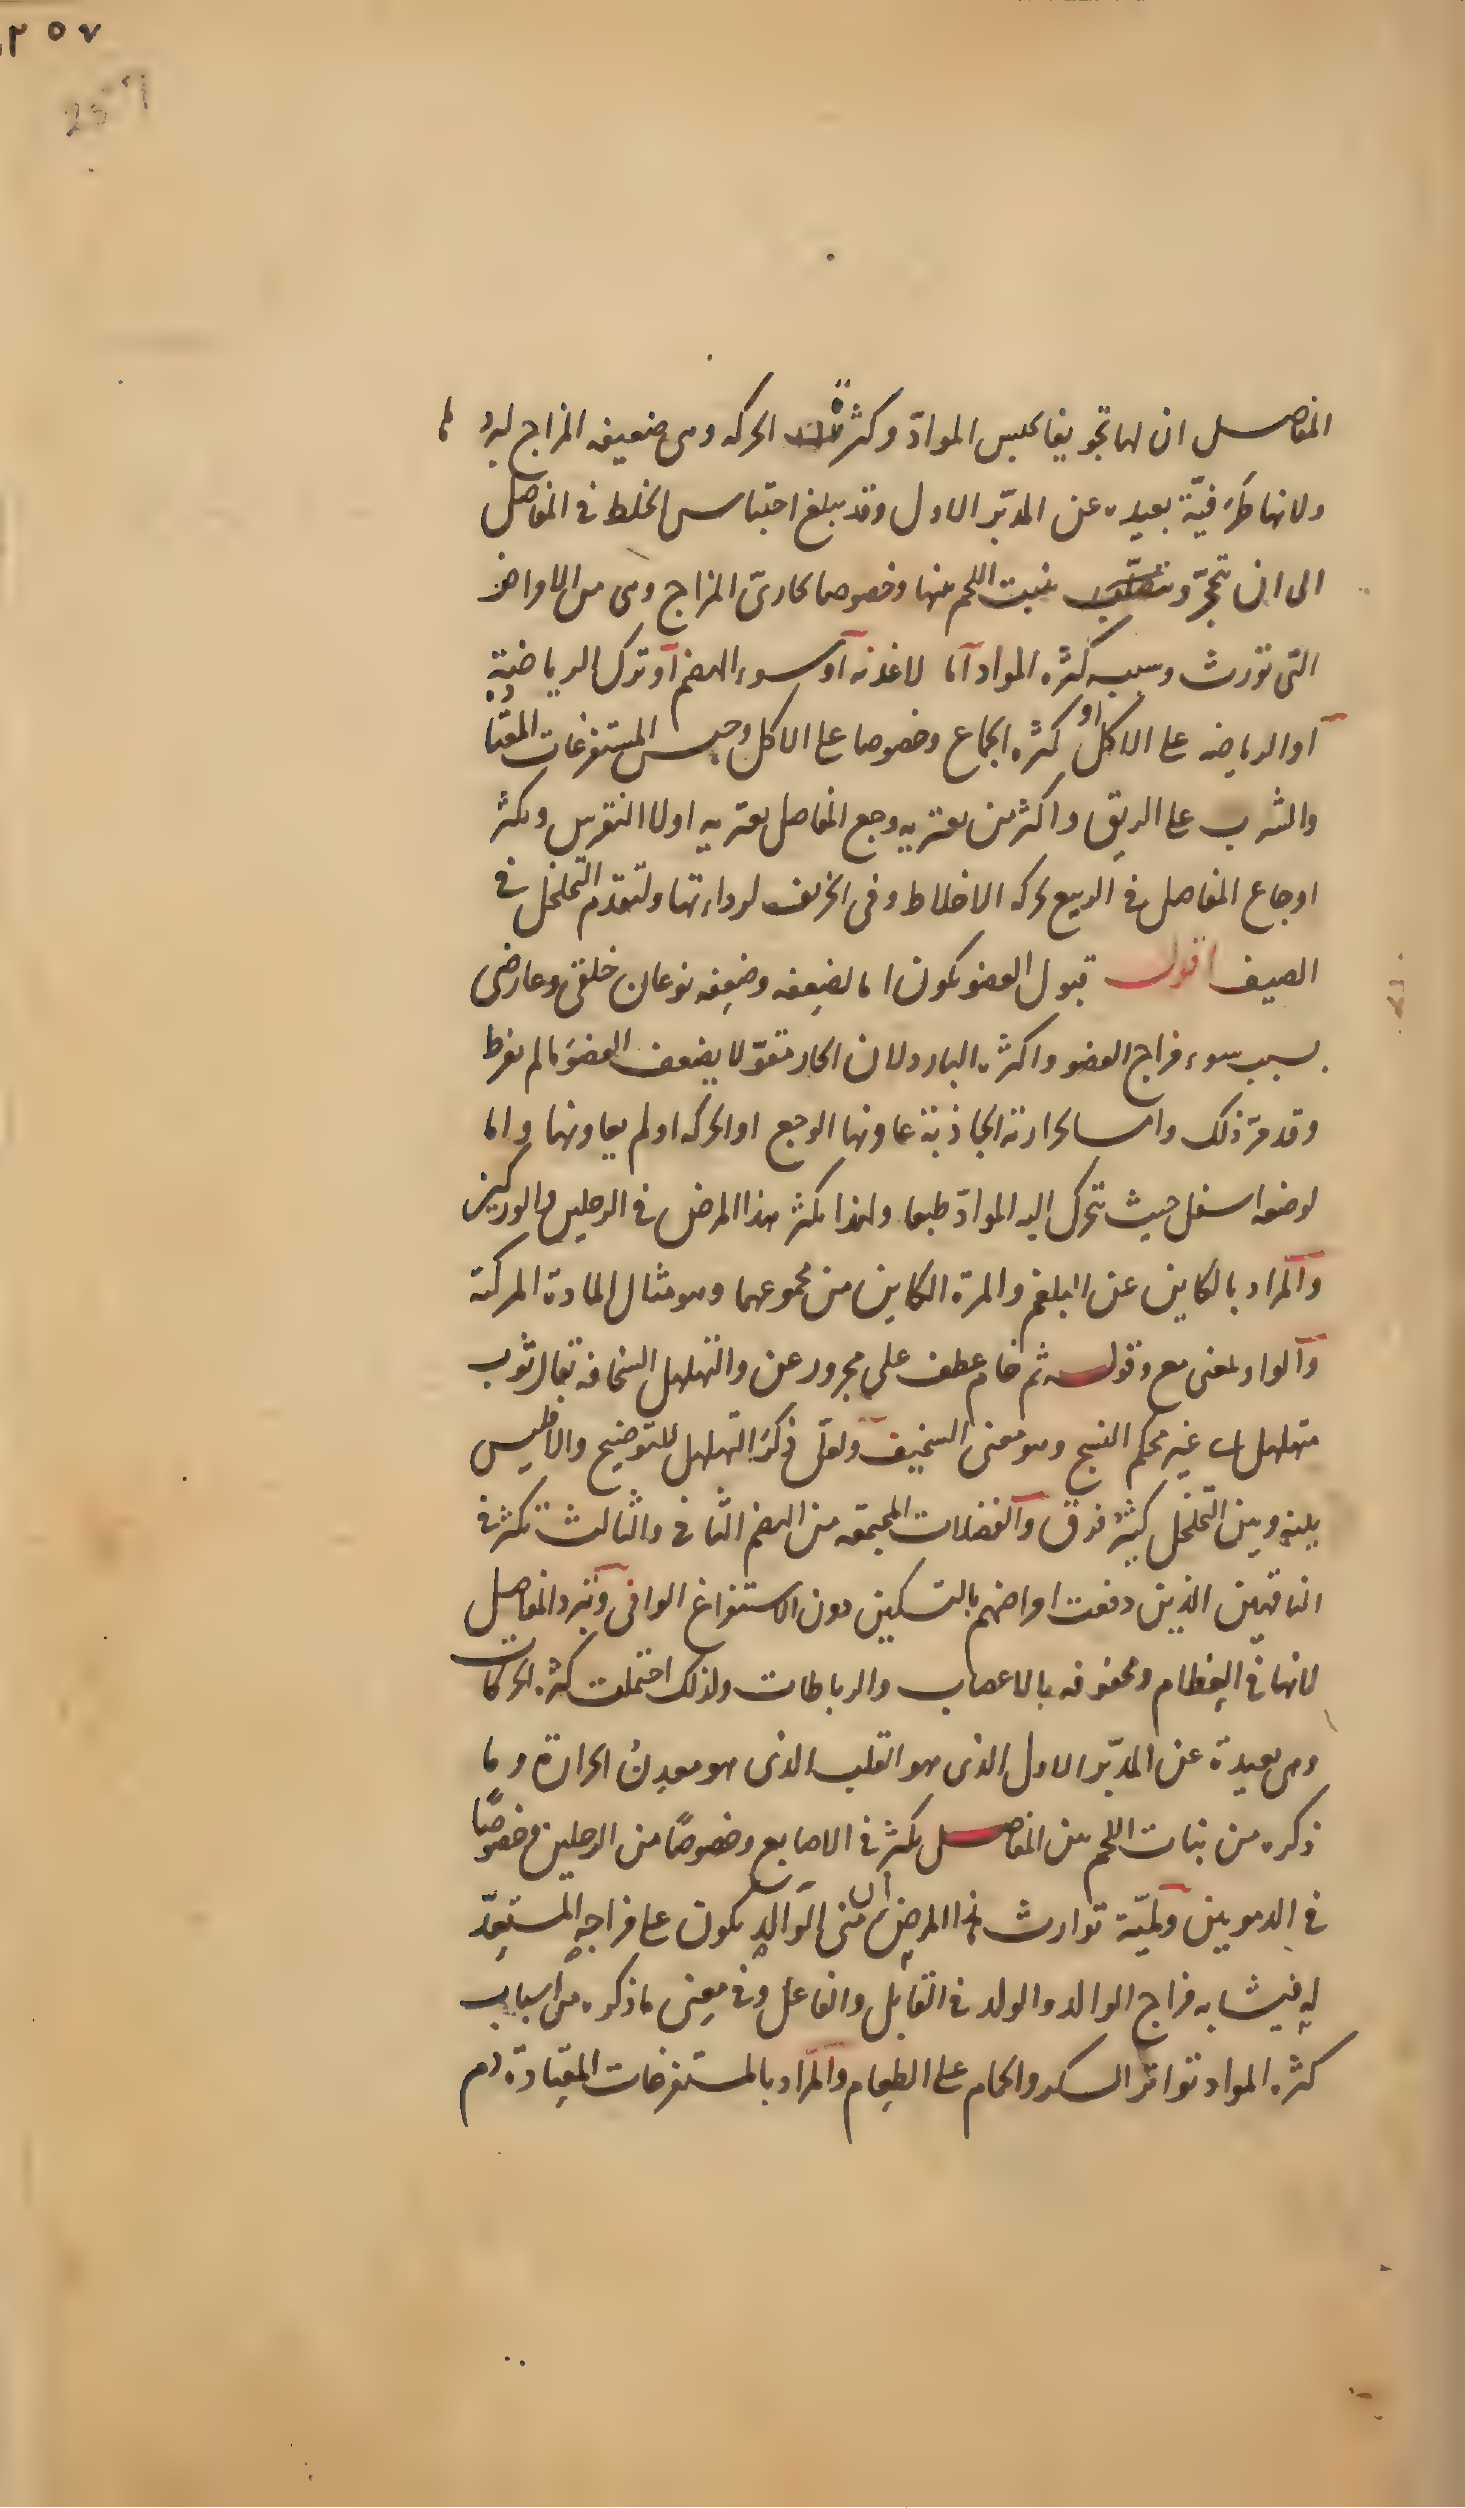 ٢٥٧
257
المفاصل ان لها تجويفا يحبس المواد وكثرة الحركه وهى ضعيفه المزاج لبردها
ولانها طرفيّة بعيده عن المدبّر الاول وقد يبلغ احتباس الخلط فى المفاصل
الى ان تتحجّر و ينبت اللحم منها وخصوصا لحارىّ المزاج وهى من الامراض
التى تورث وسبب كثره المواد اما لاغذيه او سوء الهضم او ترك الرياضية
او الرياضه على الاكل او كثره الجماع وخصوصا على الاكل وحبس المستفرغات المعتادة
والشرب على الريق واكثر من يعتريه وجع المفاصل يعتريه اولا النقرس ويكثر
اوجاع المفاصل فى الربيع لحركه الاخلاط وفى الخريف لرداءتها ولتقدم التخلخل فى
الصيف اقول قبول العضو يكون اما لضعفه وضعفه نوعان خلقى وعارضى
بسبب سوء مزاج العضو واكثره البارد لان الحار مقوّ لا يضعف العضو ما لم يفرط
وقد مرّ ذلك واما لحرارته الجاذبة عاونها الوجع او الحركه او لم يعاونها واما
لوضعه اسفل حيث تتحرك اليه الموادّ طبعا ولهذا يكثر هذا المرض فى الرجلين والوركين
والمراد بالكاين عن البلغم والمرة الكاين من مجموعهما وهو مثال المادة المركبة
والواو بمعنى مع وقوله ثم خام عطف على مجرور عن والتهلهل السخافه يقال ثوب
متهلهل اى غير محكم النسج وهو معنى السخيف ولعل ذكر التهلهل للتوضيح والا فليس
بينه وبين التخلخل كثير فرق والفضلات المجتمعه من الهضم الثانى والثالث تكثر فى
الناقهين الذين دفعت امراضهم بالتسكين دون الاستفراغ الوافى وتبرد المفاصل
لانها فى العظام ومحفوفه بالاعصاب والرباطات ولذلك احتملت كثره الحركات
وهى بعيدة عن المدبّر الاول الذى هو القلب الذى هو معدن الحرارة وما
ذكره من نبات اللحم من المفاصل يكثر فى الاصابع وخصوصًا من الرجلين وخصوصًا
فى الدمويين ولميّة توارث هذا المرض ان منى الوالد يكون على مزاجه المستعدّ
له فيشابه مزاج الوالد والولد فى القابل والفاعل وفى معنى ما ذكره من اسباب
كثره المواد تواتر السكر والحمام على الطعام والمراد بالمستفرغات المعتادة دم